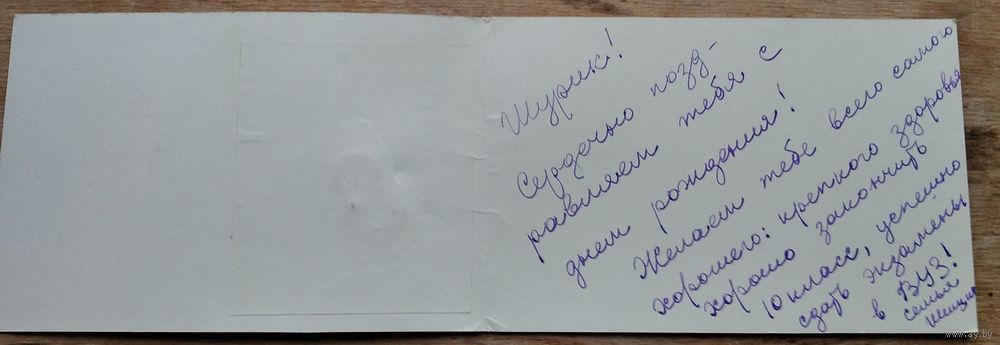 Шурик!
Сердечно позд-
равляем тебя с
днем рождения!
Желаем тебе всего самого
хорошего: крепкого здоровья
хорошо закончить
10 класс, успешно
сдать экзамены
в ВУЗ!
семья
www.ay.by